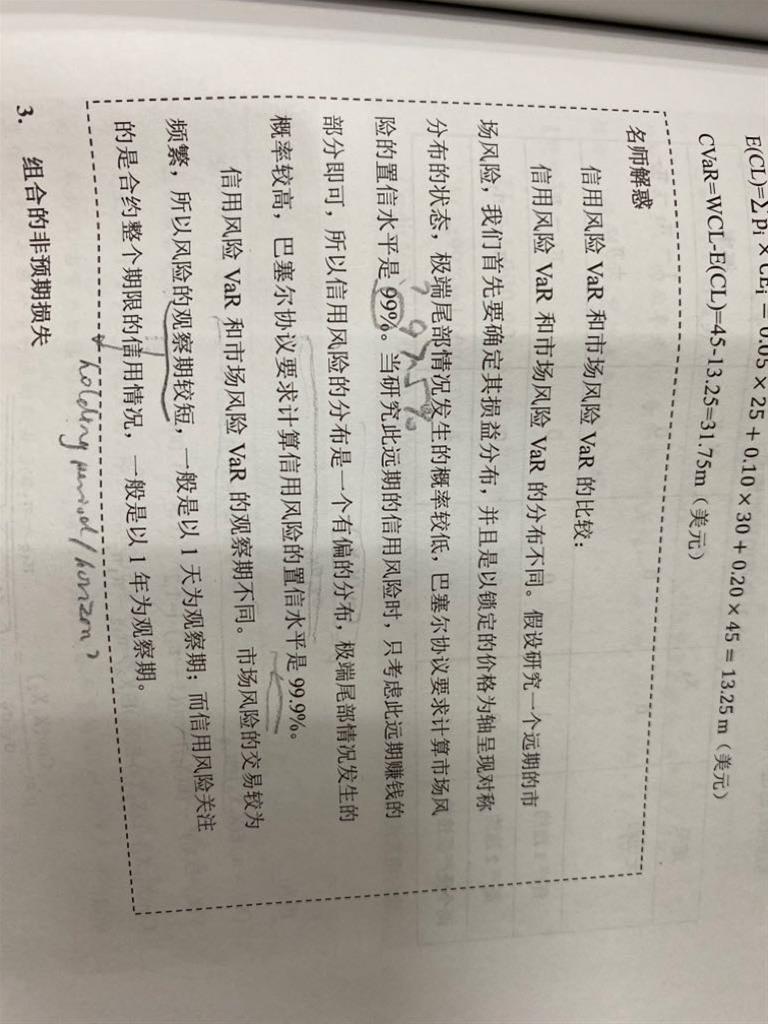 E(CL)=∑ pᵢ × CEᵢ = 0.05 × 25 + 0.10 × 30 + 0.20 × 45 = 13.25 m（美元）
CVaR=WCL-E(CL)=45-13.25=31.75m（美元）
名师解惑
信用风险 VaR 和市场风险 VaR 的比较：
信用风险 VaR 和市场风险 VaR 的分布不同。假设研究一个远期的市
场风险，我们首先要确定其损益分布，并且是以锁定的价格为轴呈现对称
分布的状态，极端尾部情况发生的概率较低，巴塞尔协议要求计算市场风
? 97.5%
险的置信水平是 99%。当研究此远期的信用风险时，只考虑此远期赚钱的
部分即可，所以信用风险的分布是一个有偏的分布，极端尾部情况发生的
概率较高，巴塞尔协议要求计算信用风险的置信水平是 99.9%。
信用风险 VaR 和市场风险 VaR 的观察期不同。市场风险的交易较为
频繁，所以风险的观察期较短，一般是以 1 天为观察期；而信用风险关注
的是合约整个期限的信用情况，一般是以 1 年为观察期。
holding period / horizon ?
3. 组合的非预期损失